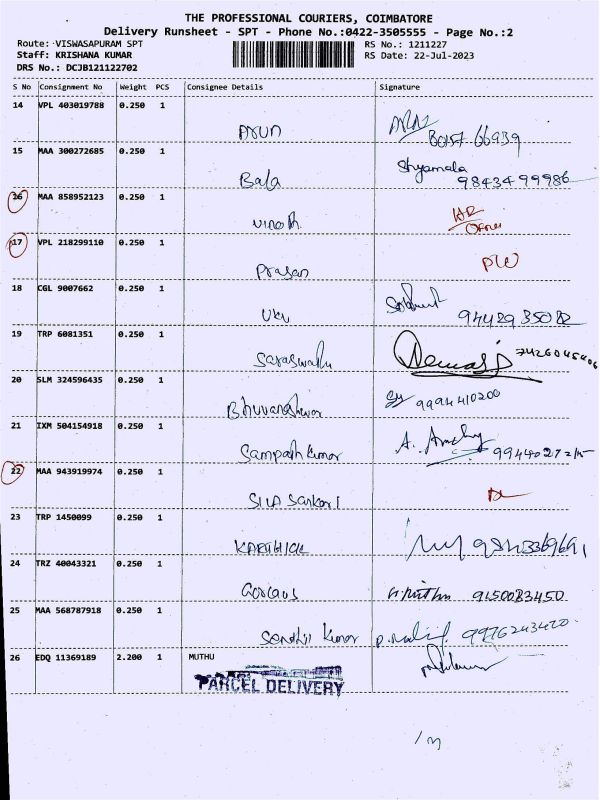 THE PROFESSIONAL COURIERS, COIMBATORE
Delivery Runsheet - SPT - Phone No.:0422-3505555 - Page No.:2
Route: VISWASAPURAM SPT RS No.: 1211227
Staff: KRISHANA KUMAR RS Date: 22-Jul-2023
DRS No.: DCJB121122702
S No Consignment No Weight PCS Consignee Details Signature
14 VPL 403019788 0.250 1
Arun
15 MAA 300272685 0.250 1 Shyamala
Bala 9843499986
16 MAA 858952123 0.250 1
Vinoth
17 VPL 218299110 0.250 1
Prasan
18 CGL 9007662 0.250 1
19 TRP 6081351 0.250 1
7426045406
20 SLM 324596435 0.250 1
9994410200
21 IXM 504154918 0.250 1
Sampath Kumar
22 MAA 943919974 0.250 1
23 TRP 1450099 0.250 1
KARTHICK
24 TRZ 40043321 0.250 1
9150083450
25 MAA 568787918 0.250 1
Senthil Kumar 9976243420
26 EDQ 11369189 2.200 1 MUTHU
PARCEL DELIVERY